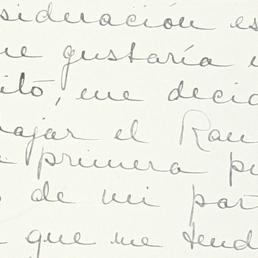 sideración es
me gustaría
itó, me decid
ajar el Ran
primera pu
de mi par
que me tend